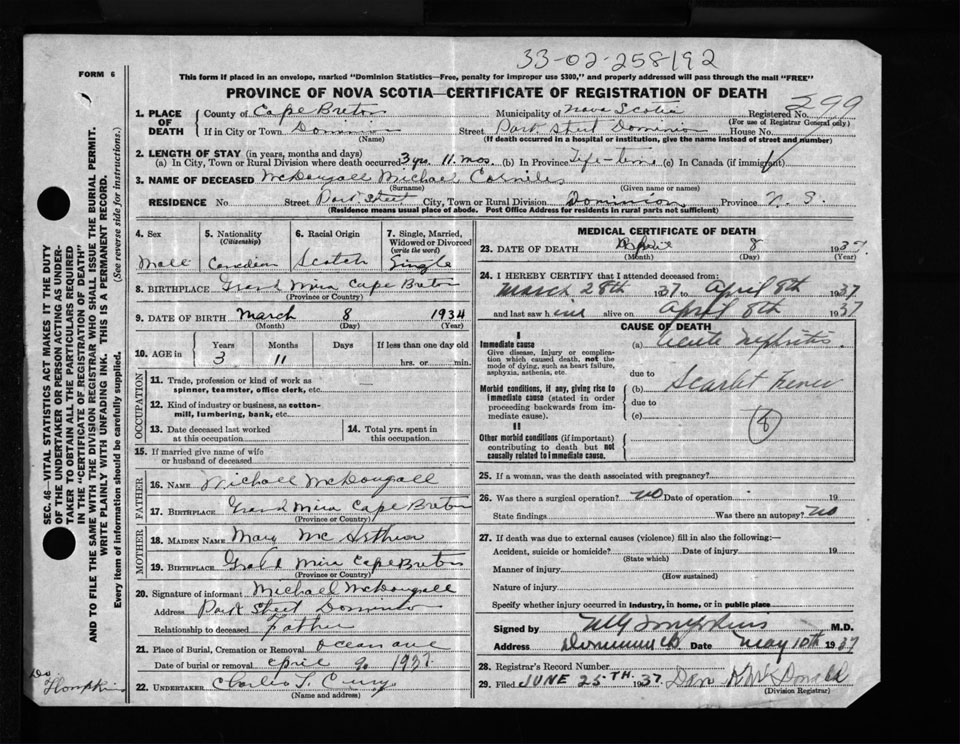 33-02-258192
FORM 6
This form if placed in an envelope, marked "Dominion Statistics—Free, penalty for improper use $300," and properly addressed will pass through the mail "FREE"
PROVINCE OF NOVA SCOTIA—CERTIFICATE OF REGISTRATION OF DEATH
1. PLACE OF DEATH County of Cape Breton Municipality of Nova Scotia Registered No. 299
(For use of Registrar General only)
If in City or Town Dominion Street Park Street Dominion House No.
(Name) (If death occurred in a hospital or institution, give the name instead of street and number)
2. LENGTH OF STAY (in years, months and days)
(a) In City, Town or Rural Division where death occurred 3 yrs. 11. mos. (b) In Province Life-time (c) In Canada (if immigrant)
3. NAME OF DECEASED McDougall Michael
(Surname) (Given name or names)
RESIDENCE No. Street Park Street City, Town or Rural Division Dominion Province N. S.
(Residence means usual place of abode. Post Office Address for residents in rural parts not sufficient)
4. Sex Male
5. Nationality (Citizenship) Canadian
6. Racial Origin Scotch
7. Single, Married, Widowed or Divorced (write the word) Single
8. BIRTHPLACE Grand Mira Cape Breton
(Province or Country)
9. DATE OF BIRTH March 8 1934
(Month) (Day) (Year)
10. AGE in Years 3 Months 11 Days If less than one day old hrs. or min.
OCCUPATION
11. Trade, profession or kind of work as spinner, teamster, office clerk, etc.
12. Kind of industry or business, as cotton-mill, lumbering, bank, etc.
13. Date deceased last worked at this occupation
14. Total yrs. spent in this occupation
15. If married give name of wife or husband of deceased
FATHER
16. NAME Michael McDougall
17. BIRTHPLACE Grand Mira Cape Breton
(Province or Country)
MOTHER
18. MAIDEN NAME Mary Mc Arthur
19. BIRTHPLACE Grand Mira Cape Breton
(Province or Country)
20. Signature of informant Michael McDougall
Address Park Street Dominion
Relationship to deceased Father
21. Place of Burial, Cremation or Removal Ocean ave
Date of burial or removal April 9 1937
22. UNDERTAKER Charles
(Name and address)
MEDICAL CERTIFICATE OF DEATH
23. DATE OF DEATH April 8 1937
(Month) (Day) (Year)
24. I HEREBY CERTIFY that I attended deceased from:
March 28th 1937 to April 8th 1937
and last saw h im alive on April 8th 1937
CAUSE OF DEATH
I
Immediate cause
Give disease, injury or complication which caused death, not the mode of dying, such as heart failure, asphyxia, asthenia, etc.
(a) Acute Nephritis
due to
Morbid conditions, if any, giving rise to immediate cause (stated in order proceeding backwards from immediate cause).
(b) Scarlet Fever
due to
(c)
8
II
Other morbid conditions (if important) contributing to death but not causally related to immediate cause.
25. If a woman, was the death associated with pregnancy?
26. Was there a surgical operation? no Date of operation 19
State findings Was there an autopsy? no
27. If death was due to external causes (violence) fill in also the following:—
Accident, suicide or homicide? Date of injury 19
(State which)
Manner of injury
(How sustained)
Nature of injury
Specify whether injury occurred in industry, in home, or in public place
Signed by Tompkins M.D.
Address Dominion Date May 10th 1937
28. Registrar's Record Number
29. Filed JUNE 25TH. 1937. Dan McDonald
(Division Registrar)
SEC. 46—VITAL STATISTICS ACT MAKES IT THE DUTY
OF THE UNDERTAKER OR PERSON ACTING AS UNDERTAKER
TO OBTAIN ALL THE PARTICULARS REQUIRED
IN THE "CERTIFICATE OF REGISTRATION OF DEATH"
AND TO FILE THE SAME WITH THE DIVISION REGISTRAR WHO SHALL ISSUE THE BURIAL PERMIT.
WRITE PLAINLY WITH UNFADING INK. THIS IS A PERMANENT RECORD.
Every item of information should be carefully supplied. (See reverse side for instructions.)
Tompkins